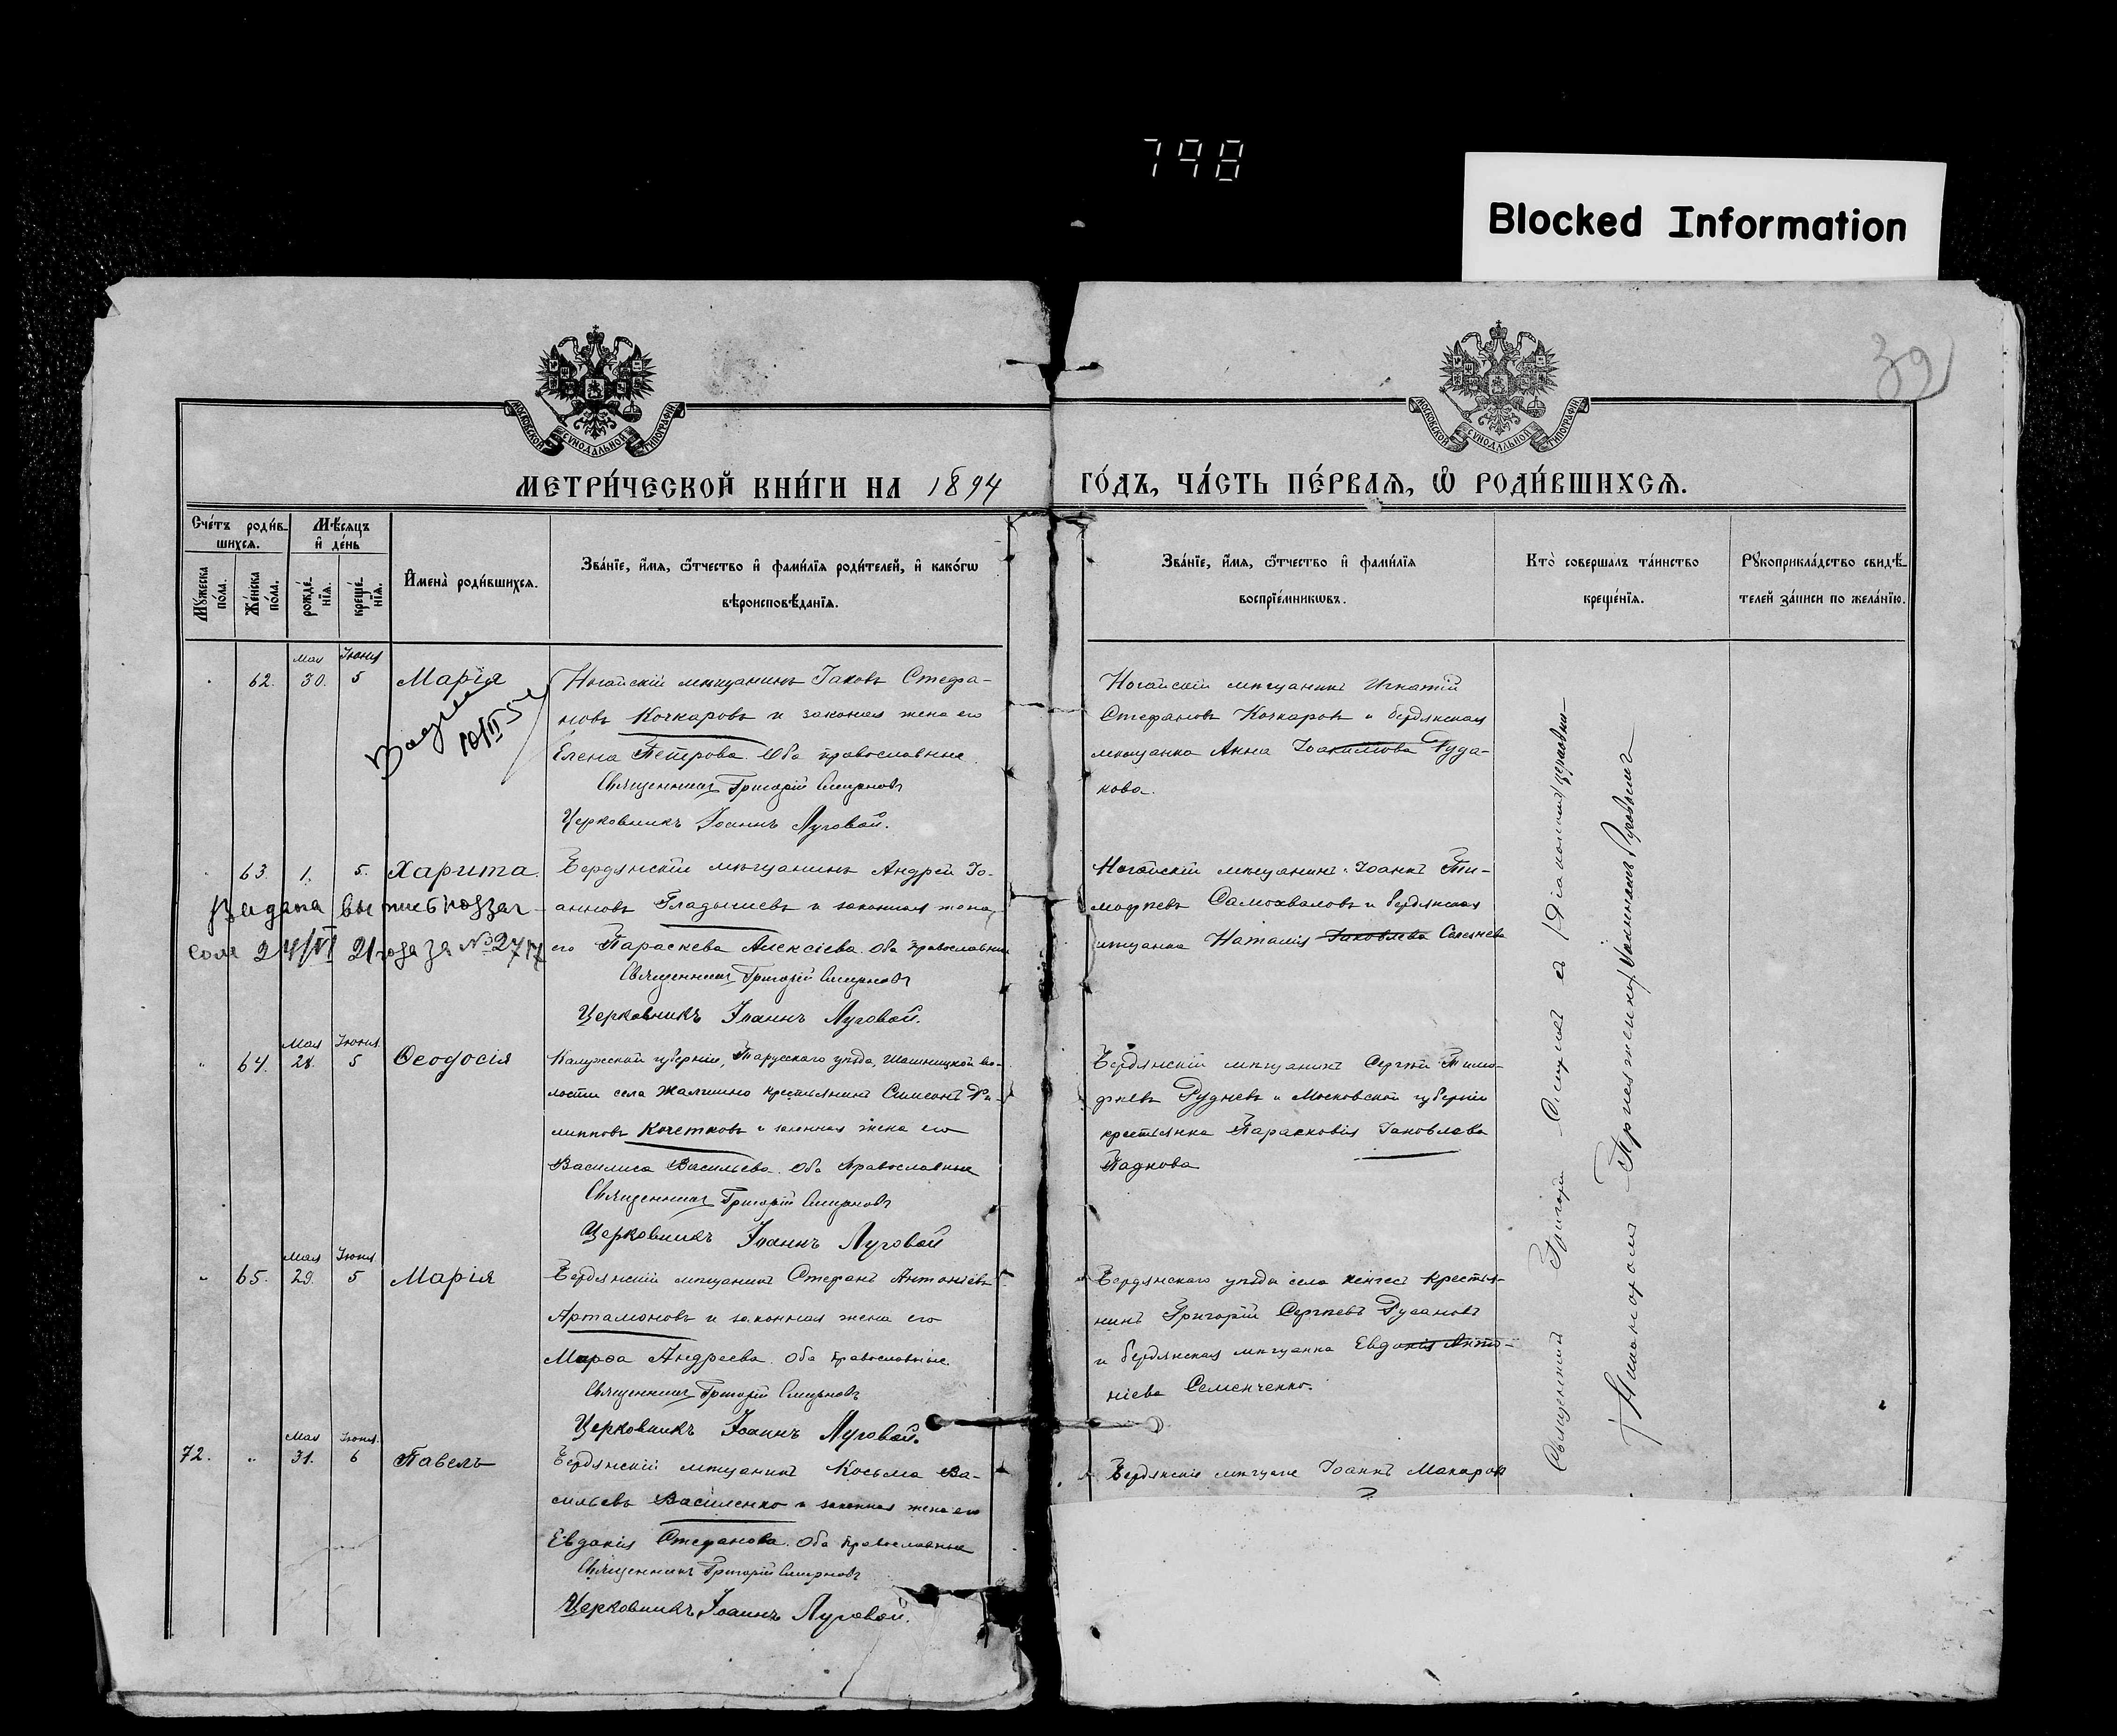 798
Blocked Information
39
МОСКОВСКОЙ СУНОДАЛЬНОЙ ТИПОГРАФІИ
МОСКОВСКОЙ СУНОДАЛЬНОЙ ТИПОГРАФІИ
МЕТРИ́ЧЕСКОЙ КНИ́ГИ НА 1894
ГО́ДЪ, ЧА́СТЬ ПЕ́РВАѦ, Ѡ҆ РОДИ́ВШИХСѦ.
Сче́тъ роди́в-
шихсѧ.
Мѣ́сѧцъ
и҆ де́нь
Мꙋ́жеска по́ла.
Же́нска по́ла.
рожде́нїѧ.
креще́нїѧ.
И҆мена̀ роди́вшихсѧ.
Зва́нїе, и҆́мѧ, ѻ҆́тчество и҆ фами́лїѧ роди́телей, и҆ како́гѡ
вѣроисповѣ́данїѧ.
Зва́нїе, и҆́мѧ, ѻ҆́тчество и҆ фами́лїѧ
воспрїе́мникѡвъ.
Кто̀ соверша́лъ та́инство
креще́нїѧ.
Рꙋкоприкла́дство свидѣ́-
телей за́писи по жела́нїю.
Мая Іюня
62. 30. 5 Марія
Ногайскій мѣщанинъ Іаковъ Стефа-
новъ Кочкаровъ и законная жена его
Елена Петрова. Оба православные.
Священникъ Григорій Смирновъ
Церковникъ Іоаннъ Луговой.
Ногайскій мѣщанинъ Игнатій
Стефановъ Кочкаровъ и бердянская
мѣщанка Анна Іоакимова Руда-
кова.
63. 1. 5. Харита.
Выдана
соля 24/VI 21 года за № 2717
Бердянскій мѣщанинъ Андрей Іо-
анновъ Гладышевъ и законная жена
его Параскева Алексіева. Оба православные
Священникъ Григорій Смирновъ
Церковникъ Іоаннъ Луговой.
Ногайскій мѣщанинъ Іоаннъ Ти-
мофеевъ Самохваловъ и бердянская
мѣщанка Наталія Іаковлева
Мая Іюня
64. 28. 5 Ѳеодосія
Калужской губерніи, Тарусскаго уѣзда, во-
лости села крестьянинъ Симеонъ Фи-
липповъ Кочетковъ и законная жена его
Василиса Васильева. Оба православные
Священникъ Григорій Смирновъ
Церковникъ Іоаннъ Луговой
Бердянскій мѣщанинъ Сергій Тимо-
феевъ Рудневъ и Московской губерніи
крестьянка Параскевія Іаковлева
Мая Іюня
65. 29. 5 Марія
Бердянскій мѣщанинъ Стефанъ Антоніевъ
Артамоновъ и законная жена его
Марѳа Андреева. Оба православные.
Священникъ Григорій Смирновъ
Церковникъ Іоаннъ Луговой.
Бердянскаго уѣзда села крестья-
нинъ Григорій Сергѣевъ Русановъ
и бердянская мѣщанка Евдокія Анто-
ніева Семенченко.
Мая Іюня
72. 31. 6 Павелъ
Бердянскій мѣщанинъ Косьма Ва-
сильевъ Василенко и законная жена его
Евдокія Стефанова. Оба православные
Священникъ Григорій Смирновъ
Церковникъ Іоаннъ Луговой.
Бердянскіе мѣщане Іоаннъ Макаровъ
Священникъ Григорій Смирновъ съ